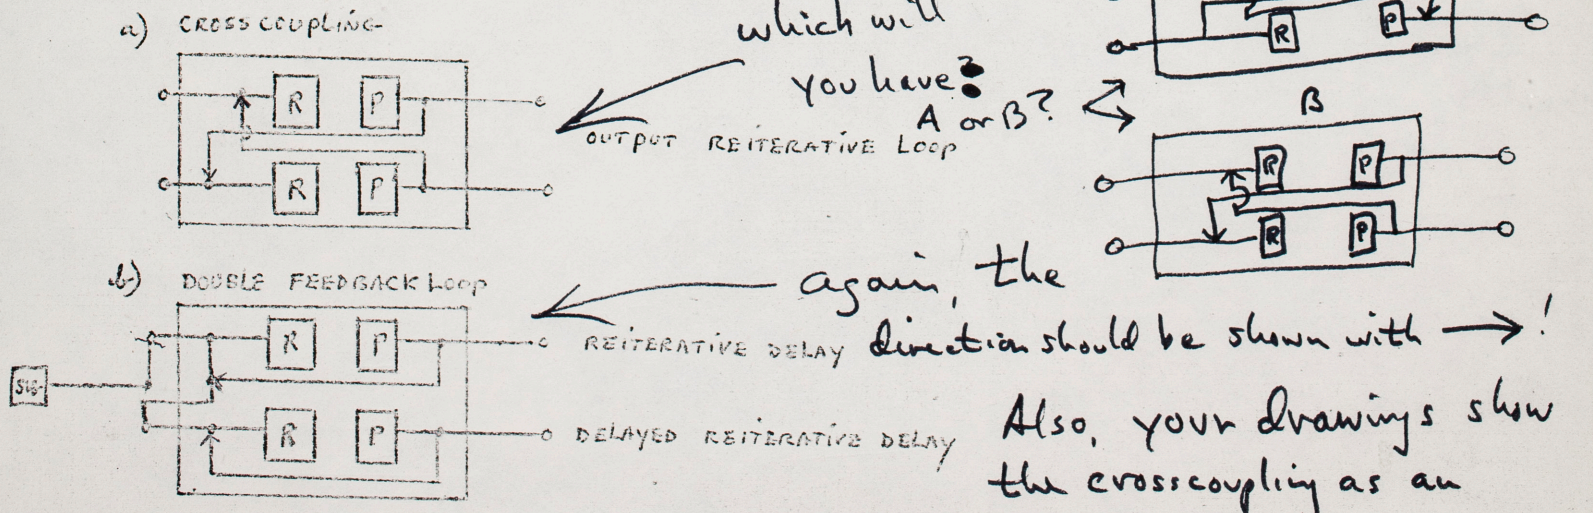 a) CROSS COUPLING
R P
R P
OUTPUT REITERATIVE LOOP
which will
you have?
A or B?
R P
B
R P
R P
b) DOUBLE FEEDBACK LOOP
SIG
R P
REITERATIVE DELAY
R P
DELAYED REITERATIVE DELAY
again, the
direction should be shown with → !
Also, your drawings show
the crosscoupling as an